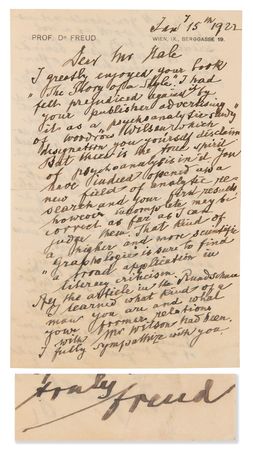 Jan 15th 1922
PROF. Dr FREUD
WIEN, IX., BERGGASSE 19.
Dear Mr Hale
I greatly enjoyed your book
"The Story of a Style". I had
felt prejudiced against it by
your publisher advertising
it as a "psychoanalytic study
of Woodrow Wilson" which
designation you yourself disclaim
But there is the true spirit
of psychoanalysis in it. You
have indeed opened up a
new field of analytic re-
search and your first results
however incomplete may be
correct as far as I can
judge them. That kind of
"a higher and more scientific
graphologie" is sure to find
a broad application in
literary criticism.
By the article in the Rundschau
I learned what kind of a
man you are and what
your former relations
with Mr Wilson had been.
I fully sympathize with you
truly
Freud